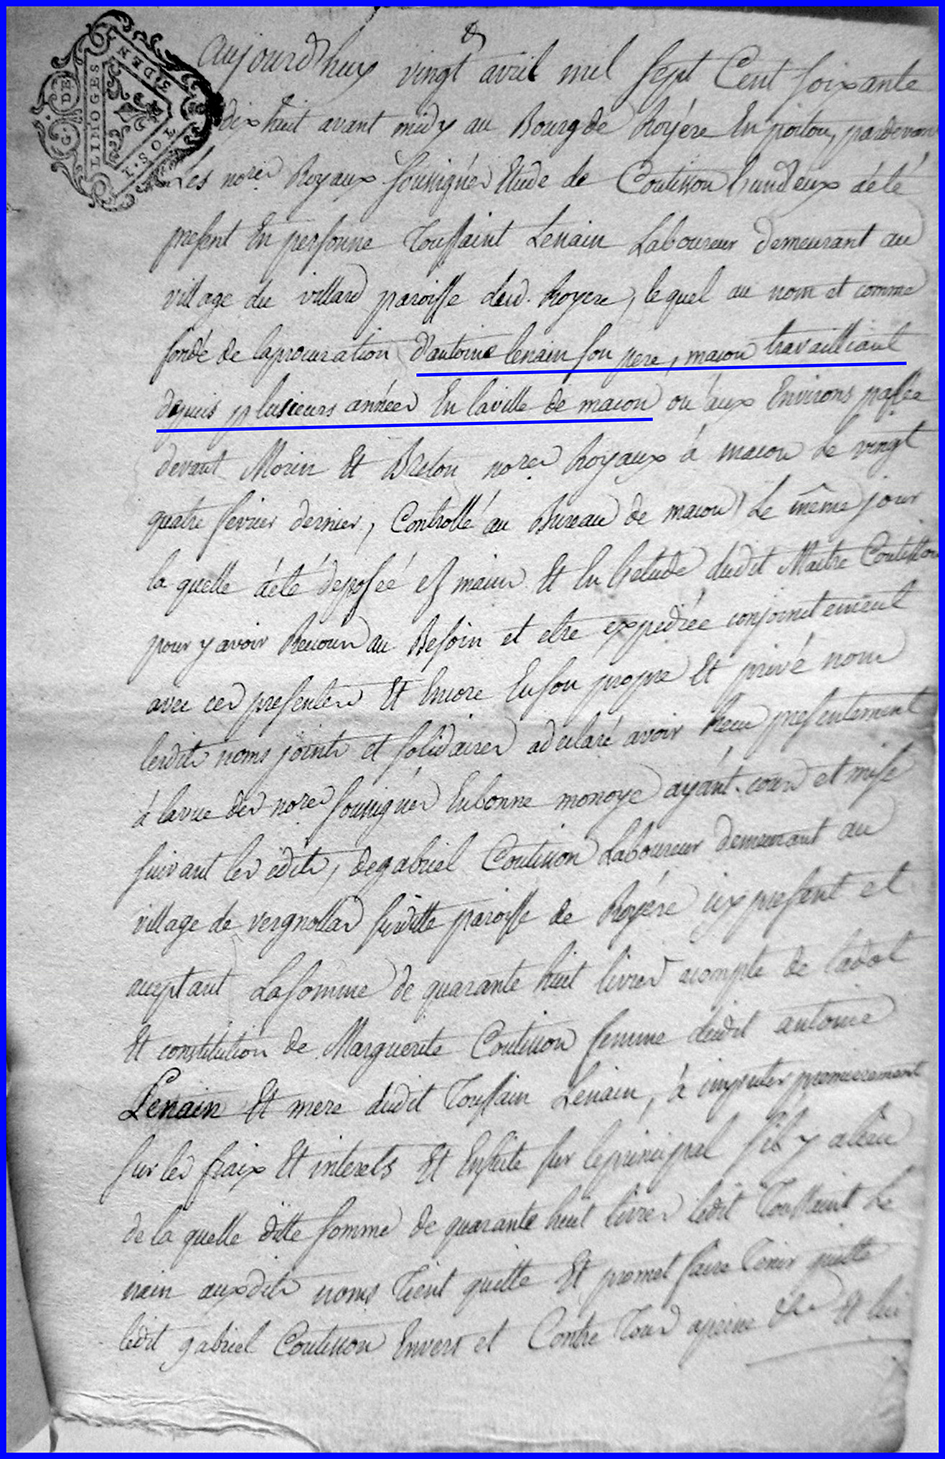 G. DE LIMOGES 3 DEN
Aujourd'huy vingt avril mil sept Cent soixante
dix huit avant midy au Bourg de Royére En poitou, pardevant
Les nores Royaux soussignés Etude de Coutisson l'un d'eux a été
present En personne Toussaint Lenain Laboureur demeurant au
village du villard paroisse dud. Royere, lequel au nom et comme
fondé de laprocuration d'antoine lenain son pere, macon travailliant
depuis plusieurs années En laville de macon ou aux Environs passée
devant Morin Et Breton nores Royaux à macon le vingt
quatre fevrier dernier, Controllé au Bureau de macon Le même jour
la quelle a été déposéé es mains Et En l'etude dudit Maitre Coutisson
pour y avoir Recours au Besoin et etre expediée conjointement
avec ces presentes Et Encore En son propre Et privé nom
lesdits noms joints et solidaires a declaré avoir Recu presentement
à lavue des nores soussignés En bonne monoye ayant cours et mise
suivant les edits, de gabriel Coutisson Laboureur demeurant au
village de vergnollas susditte paroisse de Royére icy present et
aceptant La somme de quarante huit livres acompte de ladot
Et constitution de Marguerite Coutisson femme dudit antoine
Lenain Et mere dudit Toussain Lenain, à imputer premierement
sur les fraix Et interets Et Ensuite sur leprincipal s'il y alieu
de la quelle ditte somme de quarante huit livres ledit Toussaint Le
nain auxdits noms Tient quitte Et promet faire Tenir quitte
ledit gabriel Coutisson Envers et Contre Tous apeine Et lui